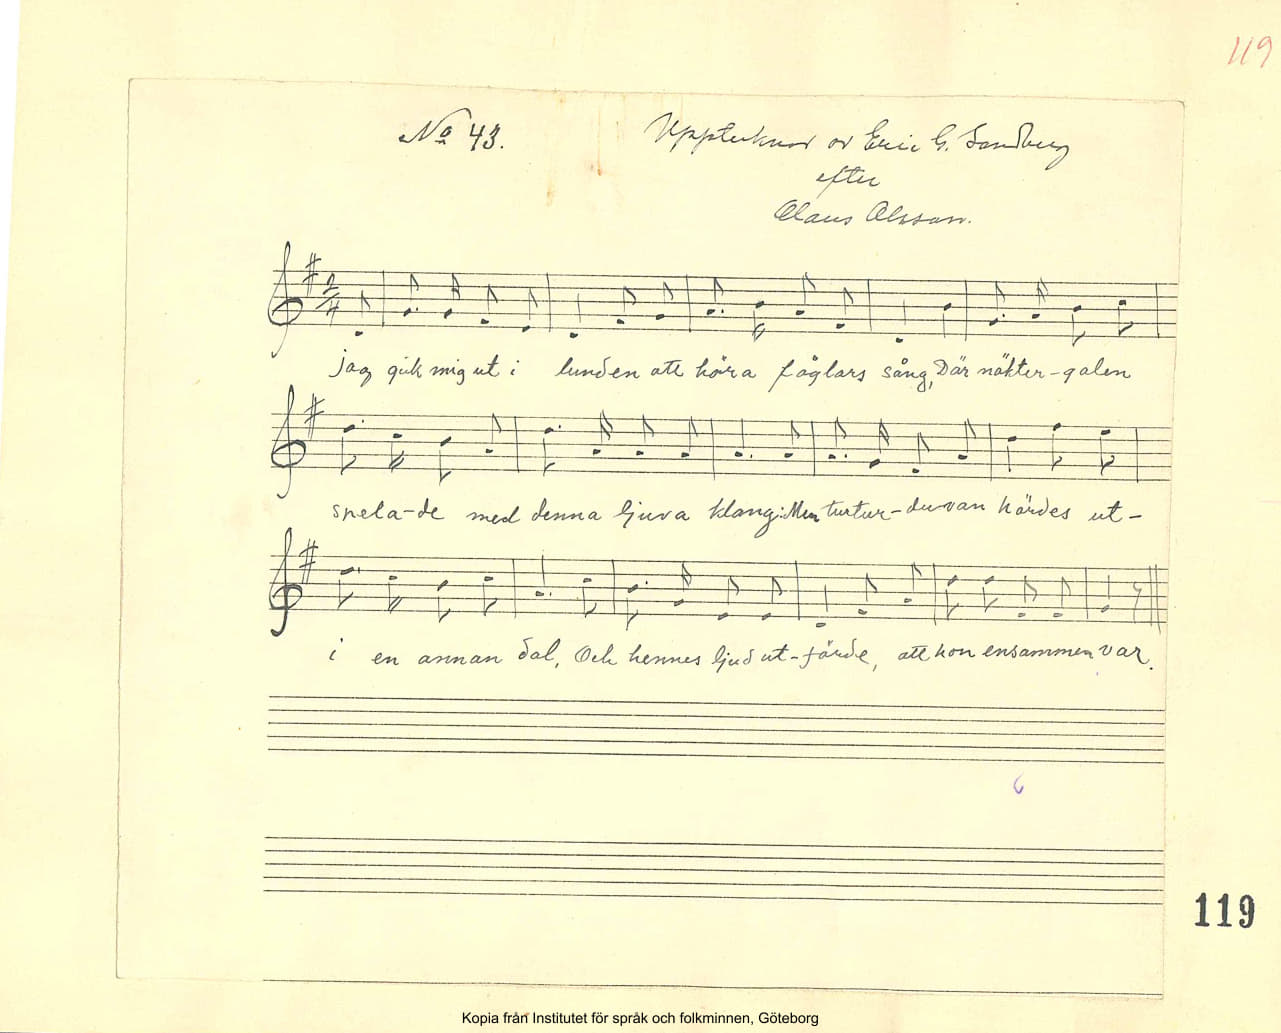 119
No 43.
Upptecknad av Eric G. Sandberg
efter
Claus Olsson.
2/4
jag gick mig ut i lunden att höra fåglars sång, Där näkter-galen
spela-de med denna ljuva klang: Men turtur-duvan hördes ut-
i en annan dal, Och hennes ljud ut-förde, att hon ensammen var.
119
Kopia från Institutet för språk och folkminnen, Göteborg